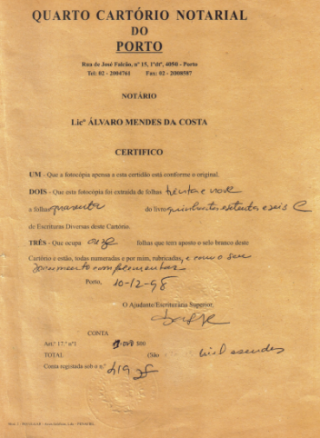 QUARTO CARTÓRIO NOTARIAL
DO
PORTO
Rua de José Falcão, nº 15, 1ºdtº, 4050 - Porto
Tel: 02 - 2004761 Fax: 02 - 2008587
NOTÁRIO
Licº ÁLVARO MENDES DA COSTA
CERTIFICO
UM - Que a fotocópia apensa a esta certidão está conforme o original.
DOIS - Que esta fotocópia foi extraída de folhas trinta e nove
a folhas quarenta do livro quinhentos setenta e seis C
de Escrituras Diversas deste Cartório.
TRÊS - Que ocupa onze folhas que tem aposto o selo branco deste
Cartório e estão, todas numeradas e por mim, rubricadas, e com o seu
documento complementar
Porto, 10-12-98
O Ajudante/Escriturário Superior,
CONTA
Artº 17.º nº1
TOTAL (São
Conta registada sob o nº 419